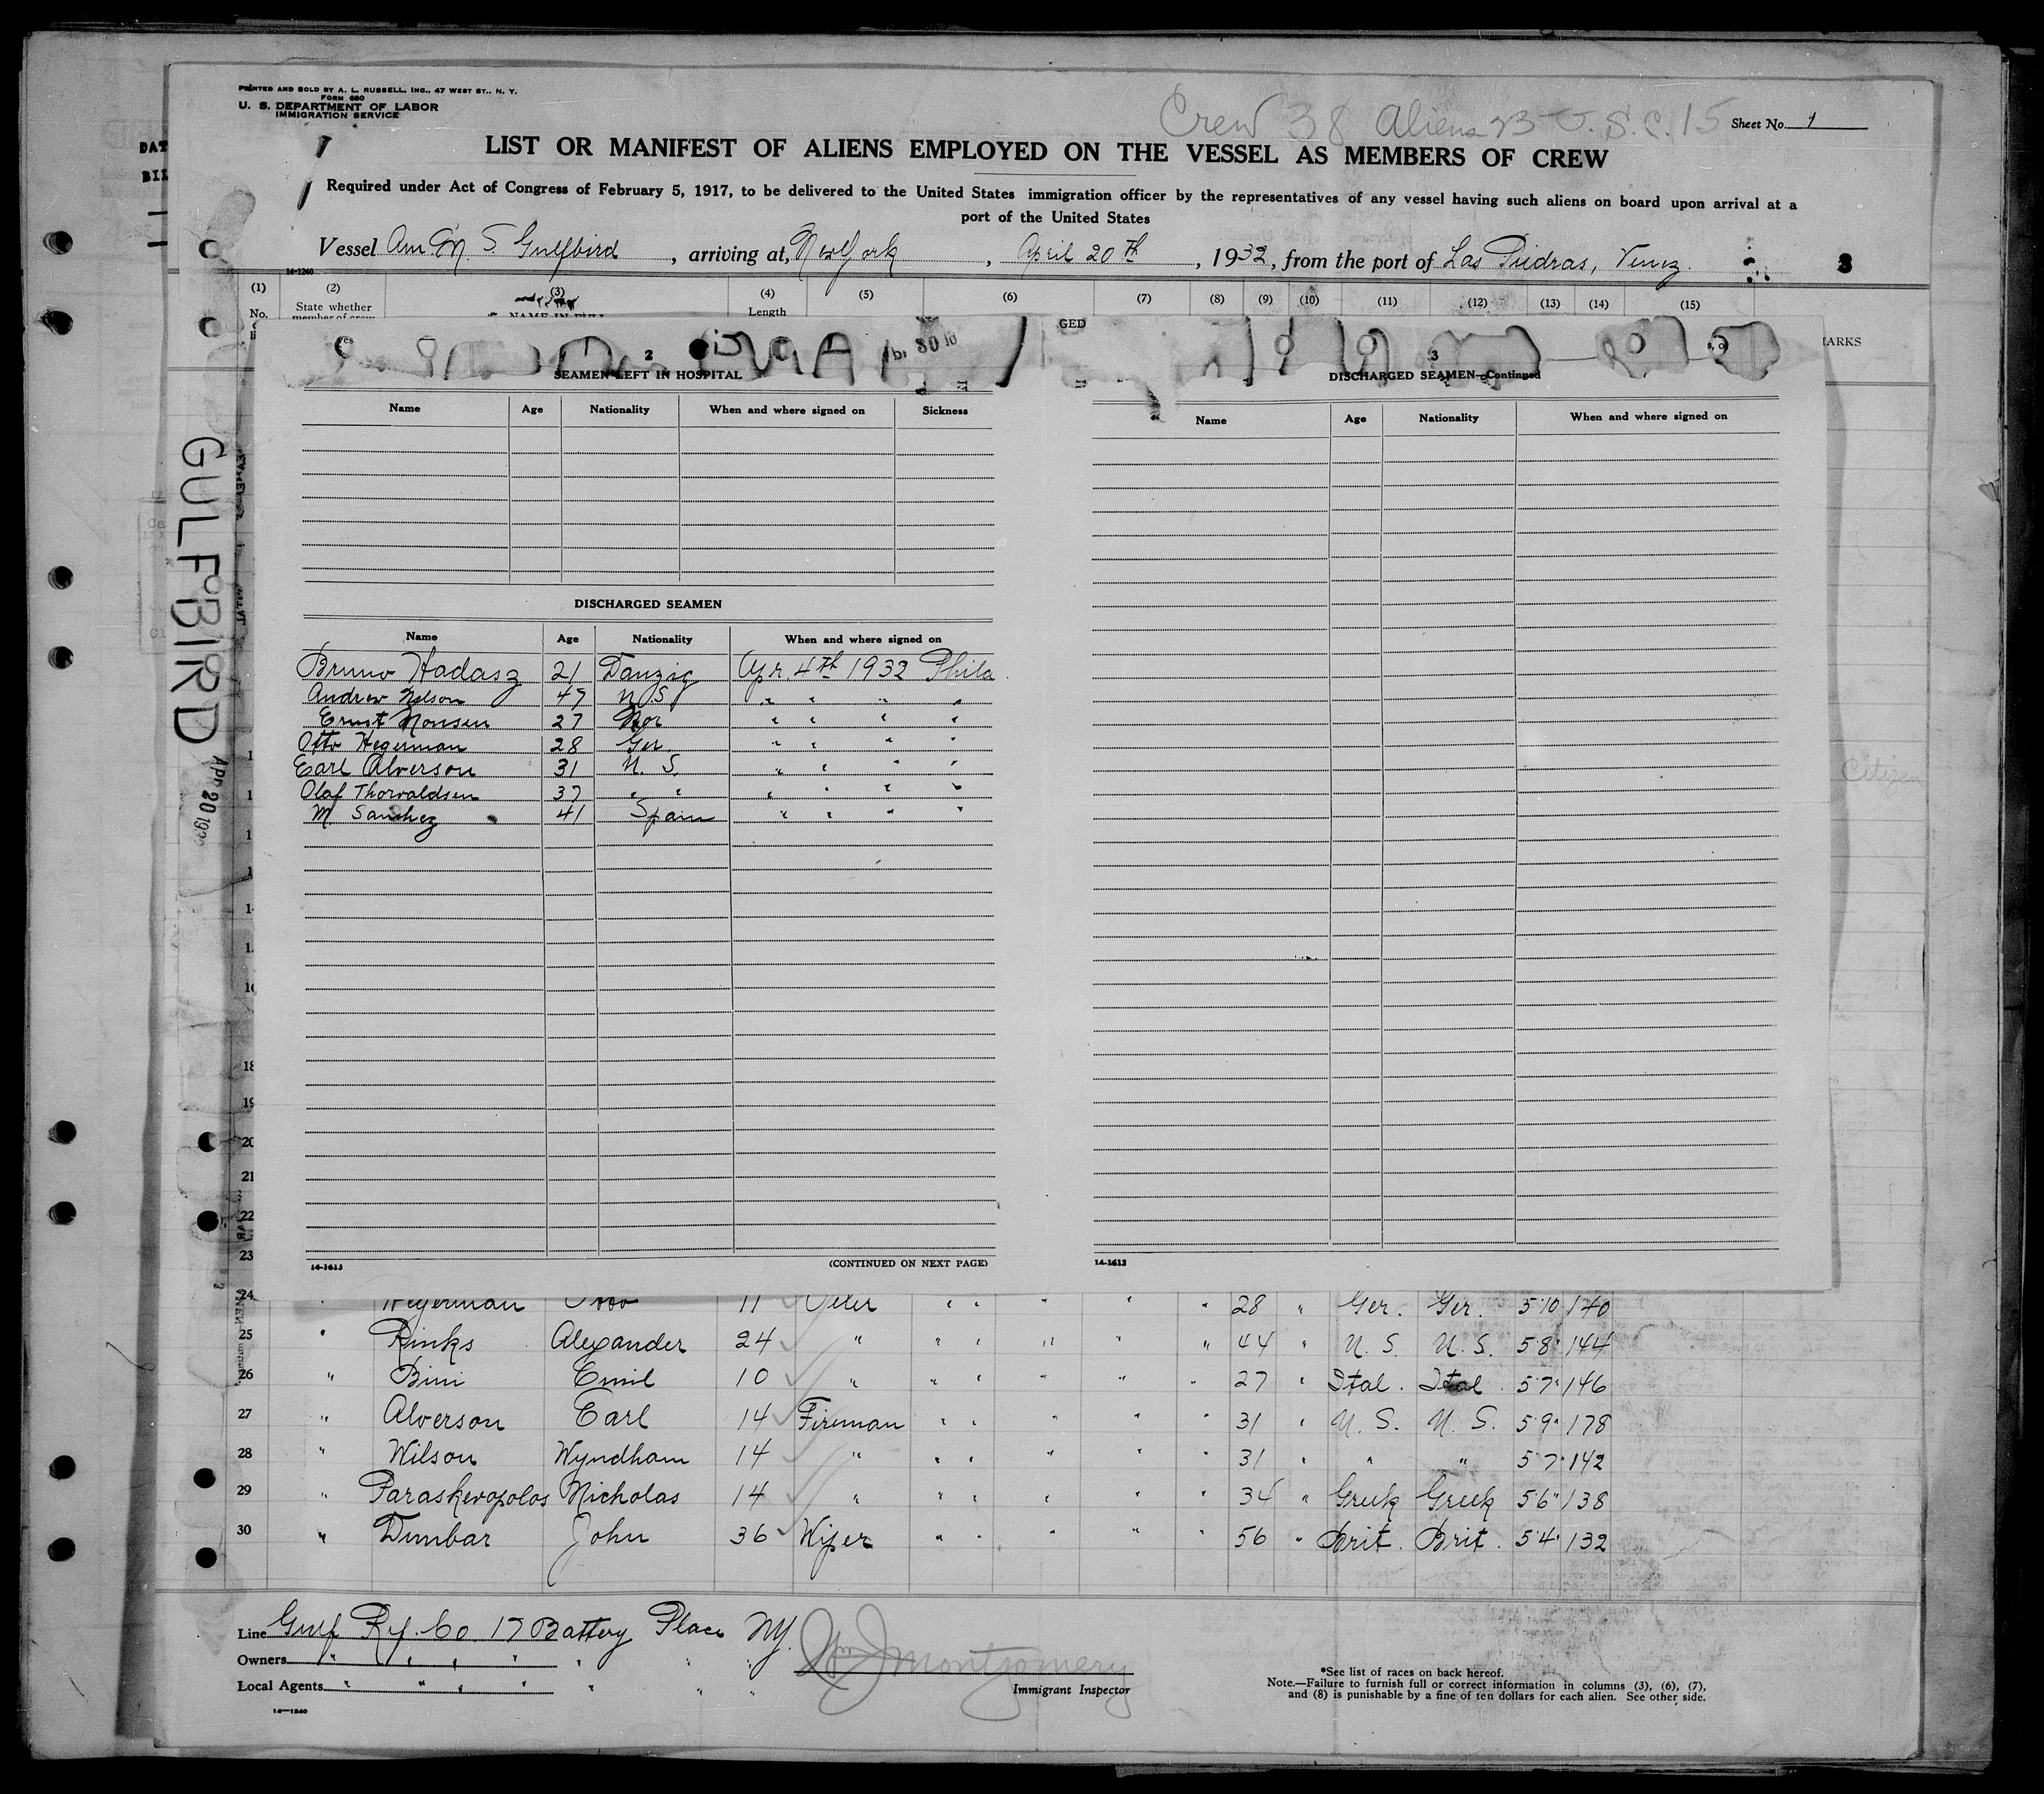 PRINTED AND SOLD BY A. L. RUSSELL, INC., 47 WEST ST., N. Y.
FORM 680
U. S. DEPARTMENT OF LABOR
IMMIGRATION SERVICE
Crew 38 Aliens 23 U.S.C. 15
Sheet No. 1
LIST OR MANIFEST OF ALIENS EMPLOYED ON THE VESSEL AS MEMBERS OF CREW
Required under Act of Congress of February 5, 1917, to be delivered to the United States immigration officer by the representatives of any vessel having such aliens on board upon arrival at a
port of the United States
Vessel Am. M. S. Gulfbird, arriving at, New York, April 20th, 1932, from the port of Las Piedras, Venez.
3
14-1240
(1) (2) (3) (4) (5) (6) (7) (8) (9) (10) (11) (12) (13) (14) (15)
No. State whether NAME IN FULL Length
member of crew
GED
ARKS
2
SEAMEN LEFT IN HOSPITAL
Name Age Nationality When and where signed on Sickness
DISCHARGED SEAMEN
Name Age Nationality When and where signed on
Bruno Hadasz 21 Danzig Apr. 4th 1932 Phila
Andrew Nelson 47 U S " " " "
Ernst Monsen 27 Nor " " " "
Otto Hegerman 28 Ger. " " " "
Earl Alverson 31 U. S. " " " "
Olaf Thorvaldsen 37 " " " " " "
M. Sanchez 41 Spain " " " "
14-1613
(CONTINUED ON NEXT PAGE)
3
DISCHARGED SEAMEN—Continued
Name Age Nationality When and where signed on
14-1613
GULFBIRD
Citizen
18
19
20
21
22
23
24 Hegerman Otto 11 Oiler " " " " " 28 " Ger. Ger. 5'10 140
25 " Rinks Alexander 24 " " " " " " 44 " U. S. U. S. 5'8" 144
26 " Bini Emil 10 " " " " " " 27 " Ital. Ital. 5'7" 146
27 " Alverson Earl 14 Fireman " " " " " 31 " U. S. U. S. 5'9" 178
28 " Wilson Wyndham 14 " " " " " " 31 " " " 5'7" 142
29 " Paraskevopolos Nicholas 14 " " " " " " 34 " Greek Greek 5'6" 138
30 " Dunbar John 36 Wiper " " " " " 56 " Brit. Brit. 5'4" 132
Line Gulf Ref. Co. 17 Battery Place NY.
Owners " " " " " " "
Local Agents " " " " " " "
Wm J Montgomery
Immigrant Inspector
*See list of races on back hereof.
Note.—Failure to furnish full or correct information in columns (3), (6), (7),
and (8) is punishable by a fine of ten dollars for each alien. See other side.
14—1240